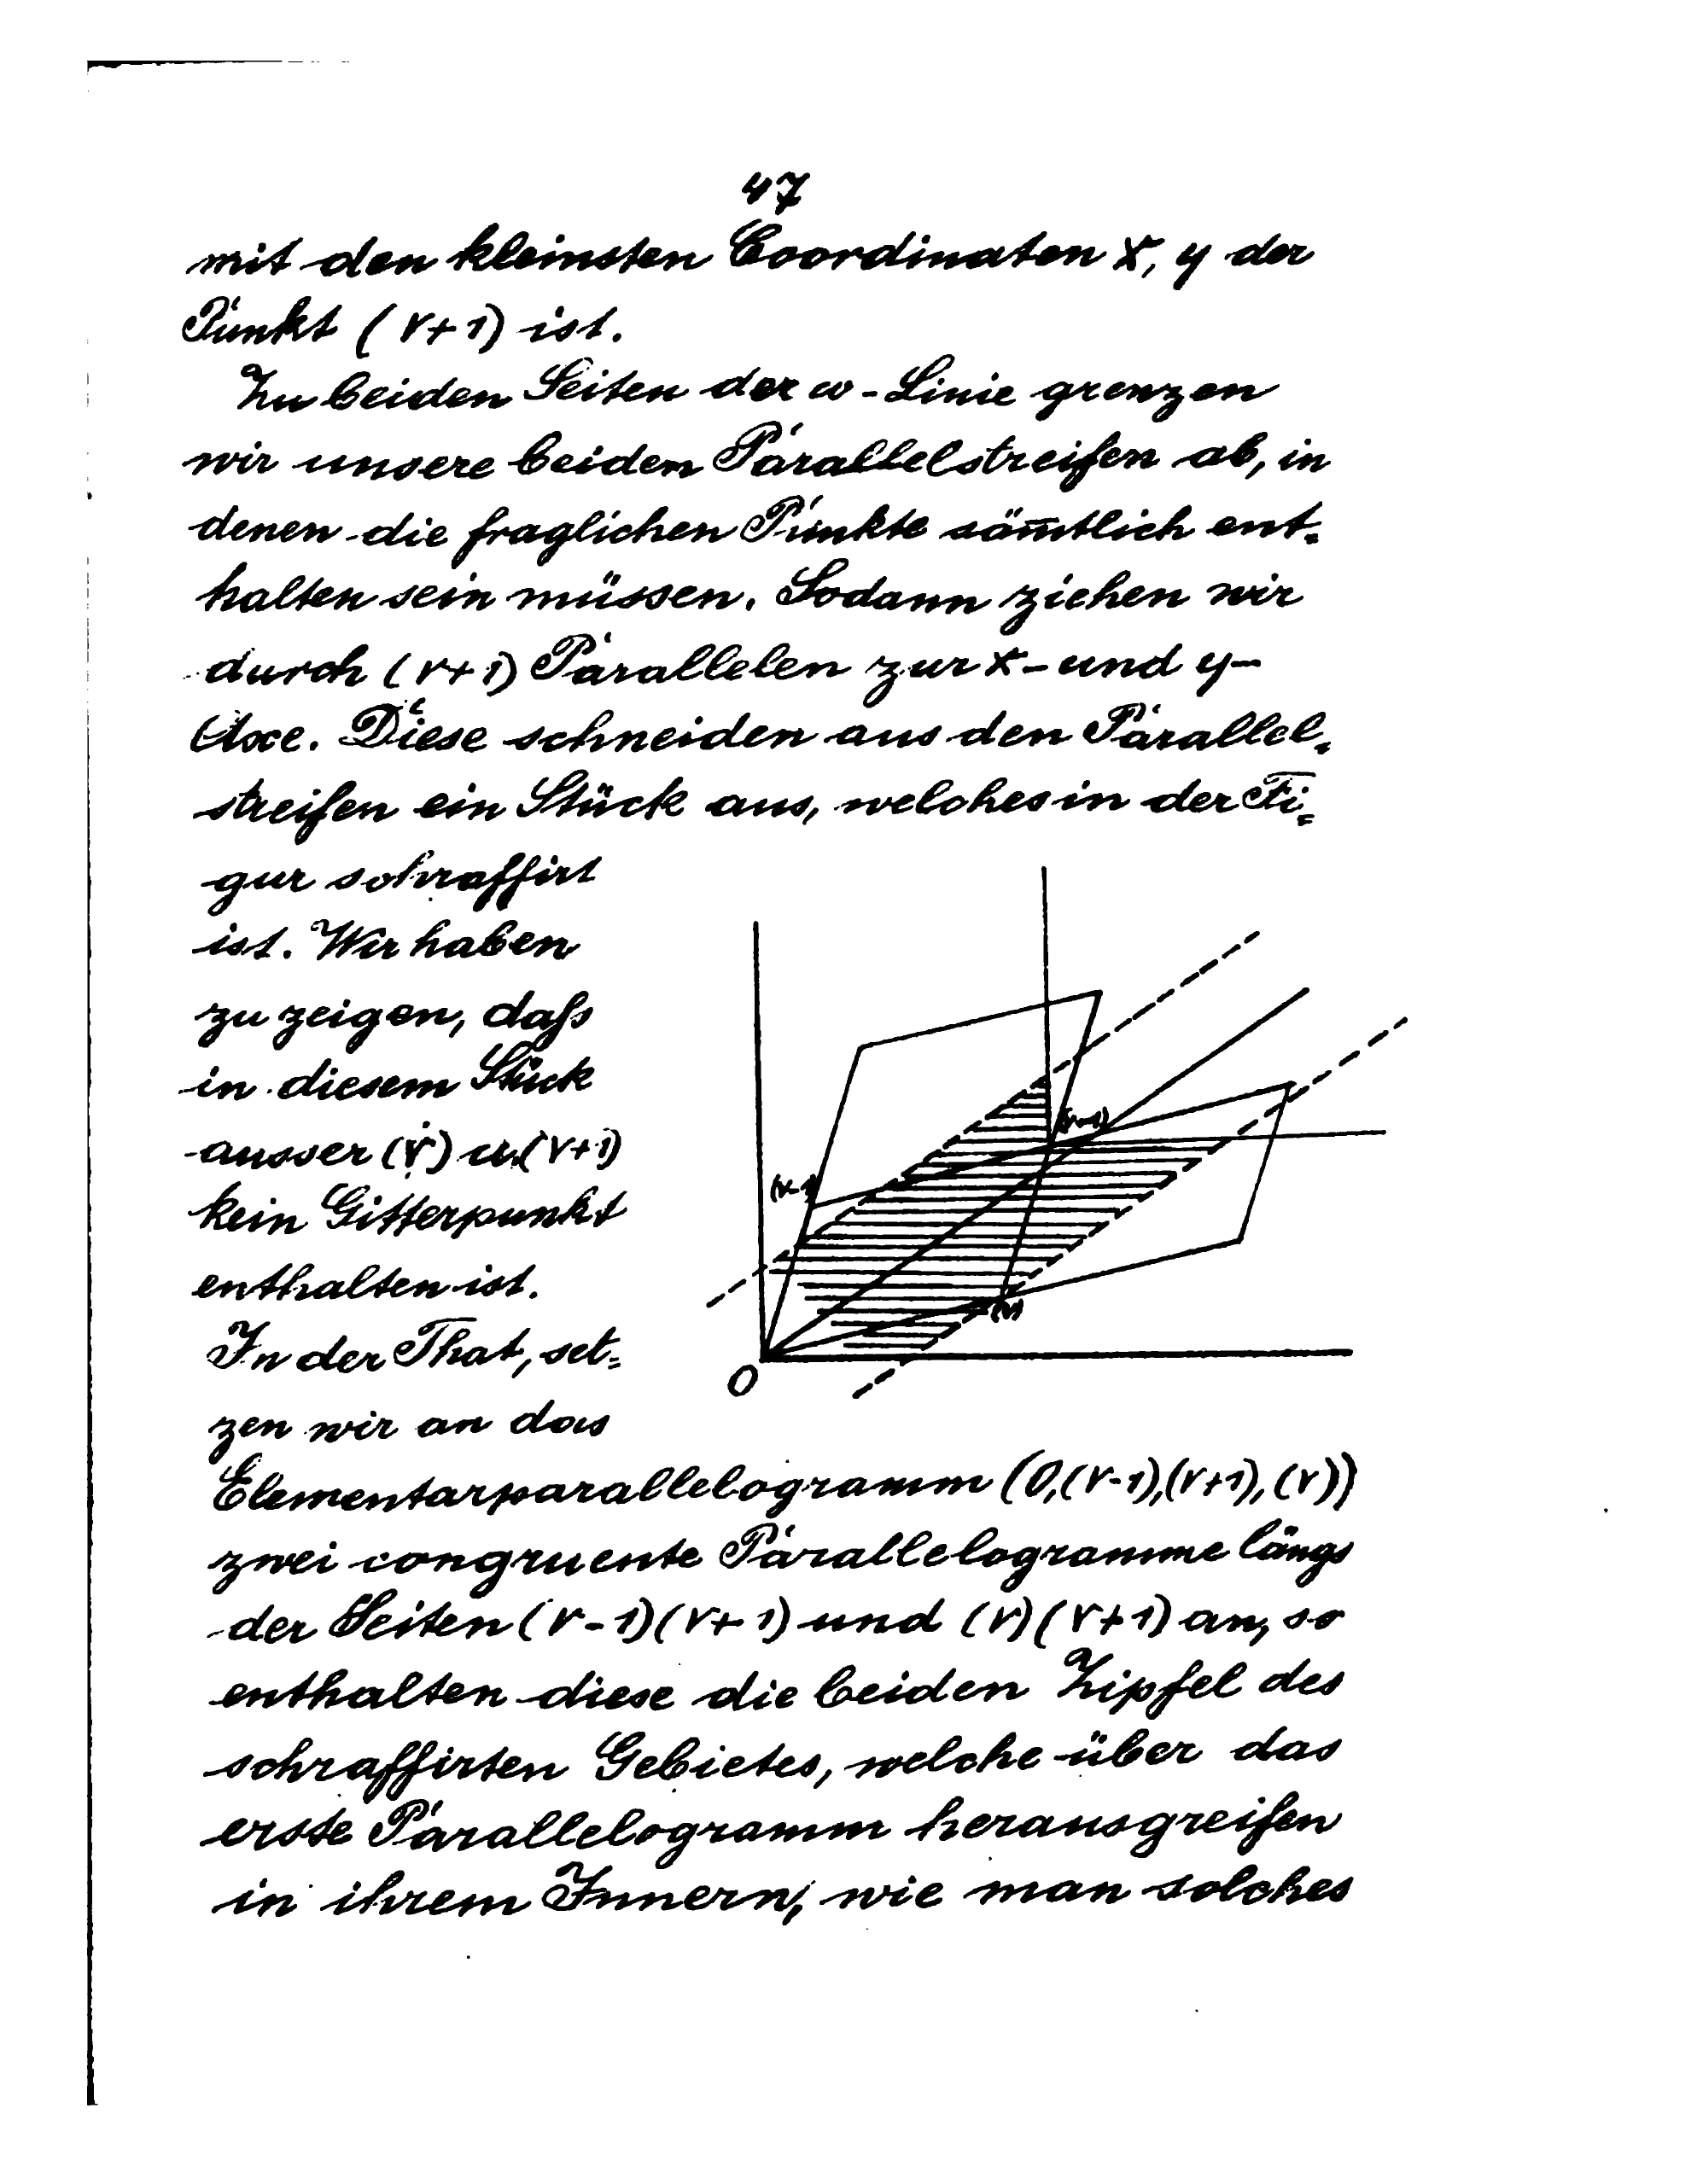 47
mit den kleinsten Coordinaten x, y der
Punkt (ν+1) ist.
Zu beiden Seiten der ω-Linie grenzen
wir unsere beiden Parallelstreifen ab, in
denen die fraglichen Punkte sämtlich ent-
halten sein müssen. Sodann ziehen wir
durch (ν+1) Parallelen zur x- und y-
Axe. Diese schneiden aus den Parallel-
streifen ein Stück aus, welches in der Fi-
gur schraffirt
ist. Wir haben
zu zeigen, daß
in diesem Stück
ausser (ν) u. (ν+1)
kein Gitterpunkt
enthalten ist.
In der That, set-
zen wir an das
(ν-1)
(ν)
O
Elementarparallelogramm (0,(ν-1),(ν+1),(ν))
zwei congruente Parallelogramme längs
der Seiten (ν-1)(ν+1) und (ν)(ν+1) an, so
enthalten diese die beiden Zipfel des
schraffirten Gebietes, welche über das
erste Parallelogramm herausgreifen
in ihrem Innern, wie man solches